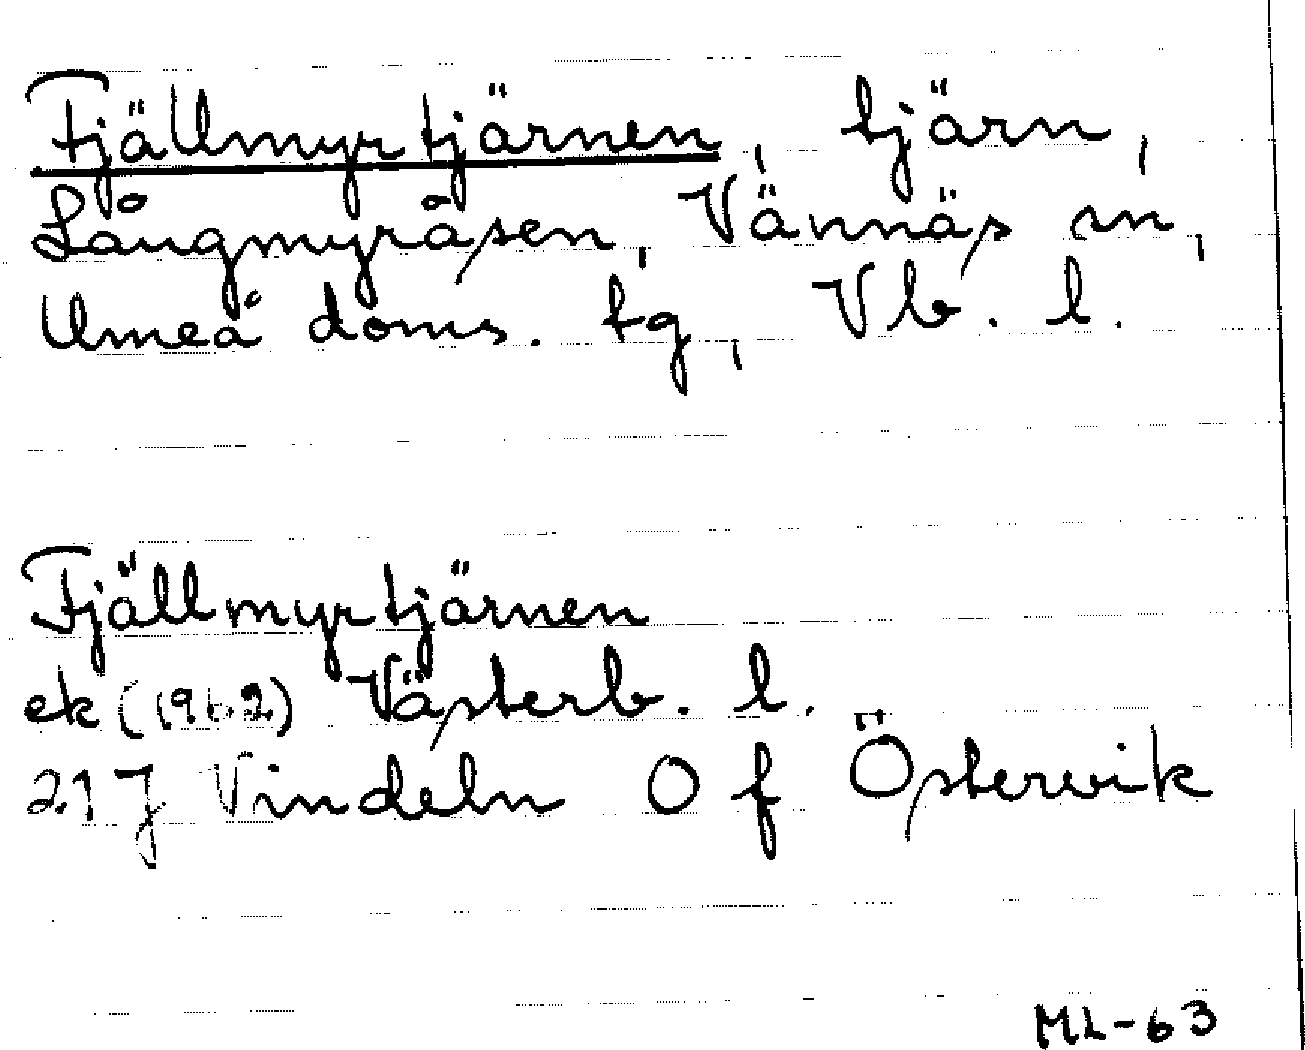 Fjällmyrtjärnen, tjärn,
Långmyråsen, Vännäs sn,
Umeå doms. tg, Vb. l.
Fjällmyrtjärnen
ek (1962) Västerb. l.
21 J Vindeln O f Östervik
ML-63